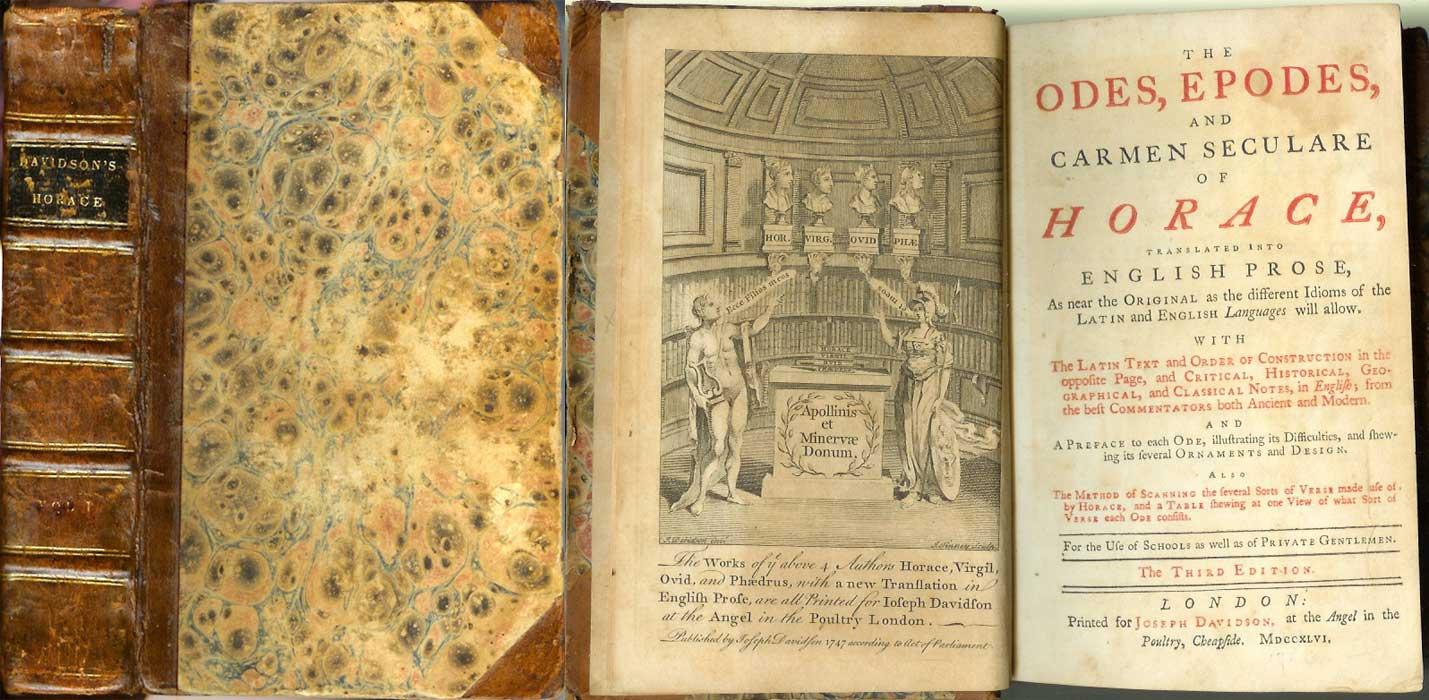 DAVIDSON'S
HORACE
VOL I
HOR.
VIRG.
OVID
PHÆ
Ecce Filios meos
Apollinis
et
Minervæ
Donum.
The Works of yͤ above 4 Authors Horace, Virgil,
Ovid, and Phædrus, with a new Tranſlation in
Engliſh Proſe, are all Printed for Ioſeph Davidſon
at the Angel in the Poultry London.
Publiſhed by Joſeph Davidſon 1747 according to Act of Parliament
THE
ODES, EPODES,
AND
CARMEN SECULARE
OF
HORACE,
TRANSLATED INTO
ENGLISH PROSE,
As near the ORIGINAL as the different Idioms of the
LATIN and ENGLISH Languages will allow.
WITH
The LATIN TEXT and ORDER OF CONSTRUCTION in the
oppoſite Page, and CRITICAL, HISTORICAL, GEO-
GRAPHICAL, and CLASSICAL NOTES, in Engliſh; from
the beſt COMMENTATORS both Ancient and Modern.
AND
A PREFACE to each ODE, illuſtrating its Difficulties, and ſhew-
ing its ſeveral ORNAMENTS and DESIGN.
ALSO
The METHOD of SCANNING the ſeveral Sorts of VERSE made uſe of
by HORACE, and a TABLE ſhewing at one View of what Sort of
VERSE each ODE conſiſts.
For the Uſe of SCHOOLS as well as of PRIVATE GENTLEMEN.
The THIRD EDITION.
LONDON:
Printed for JOSEPH DAVIDSON, at the Angel in the
Poultry, Cheapſide. MDCCXLVI.